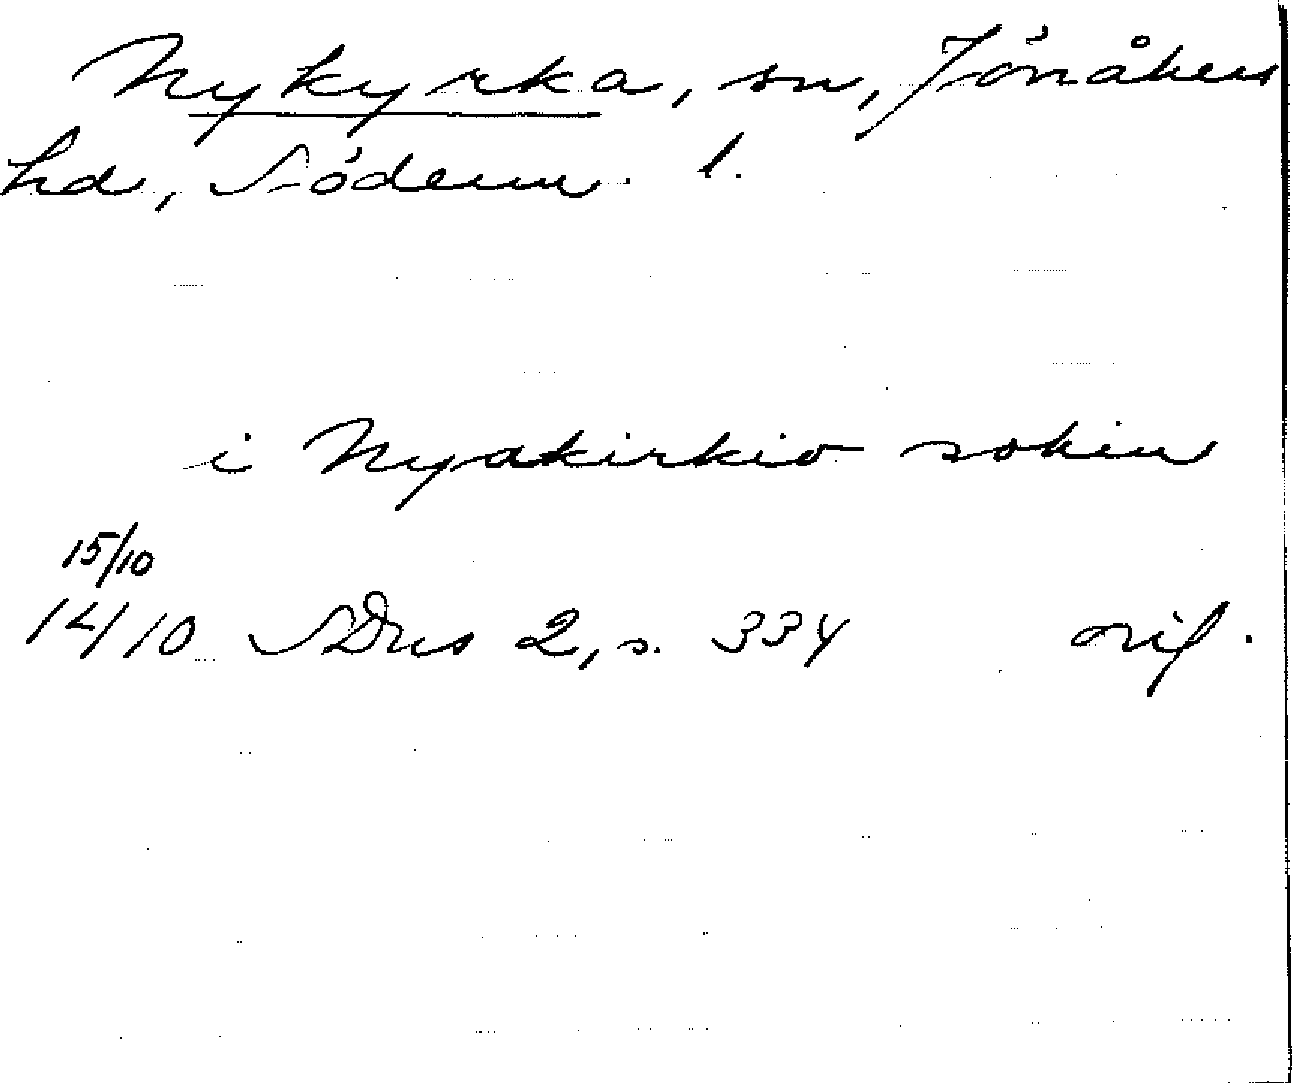 Nykyrka, sn, Jönåkers
hd, Söderm. l.
i Nyakirkio sokin
15/10
1410 SDns 2, s. 334 orig.